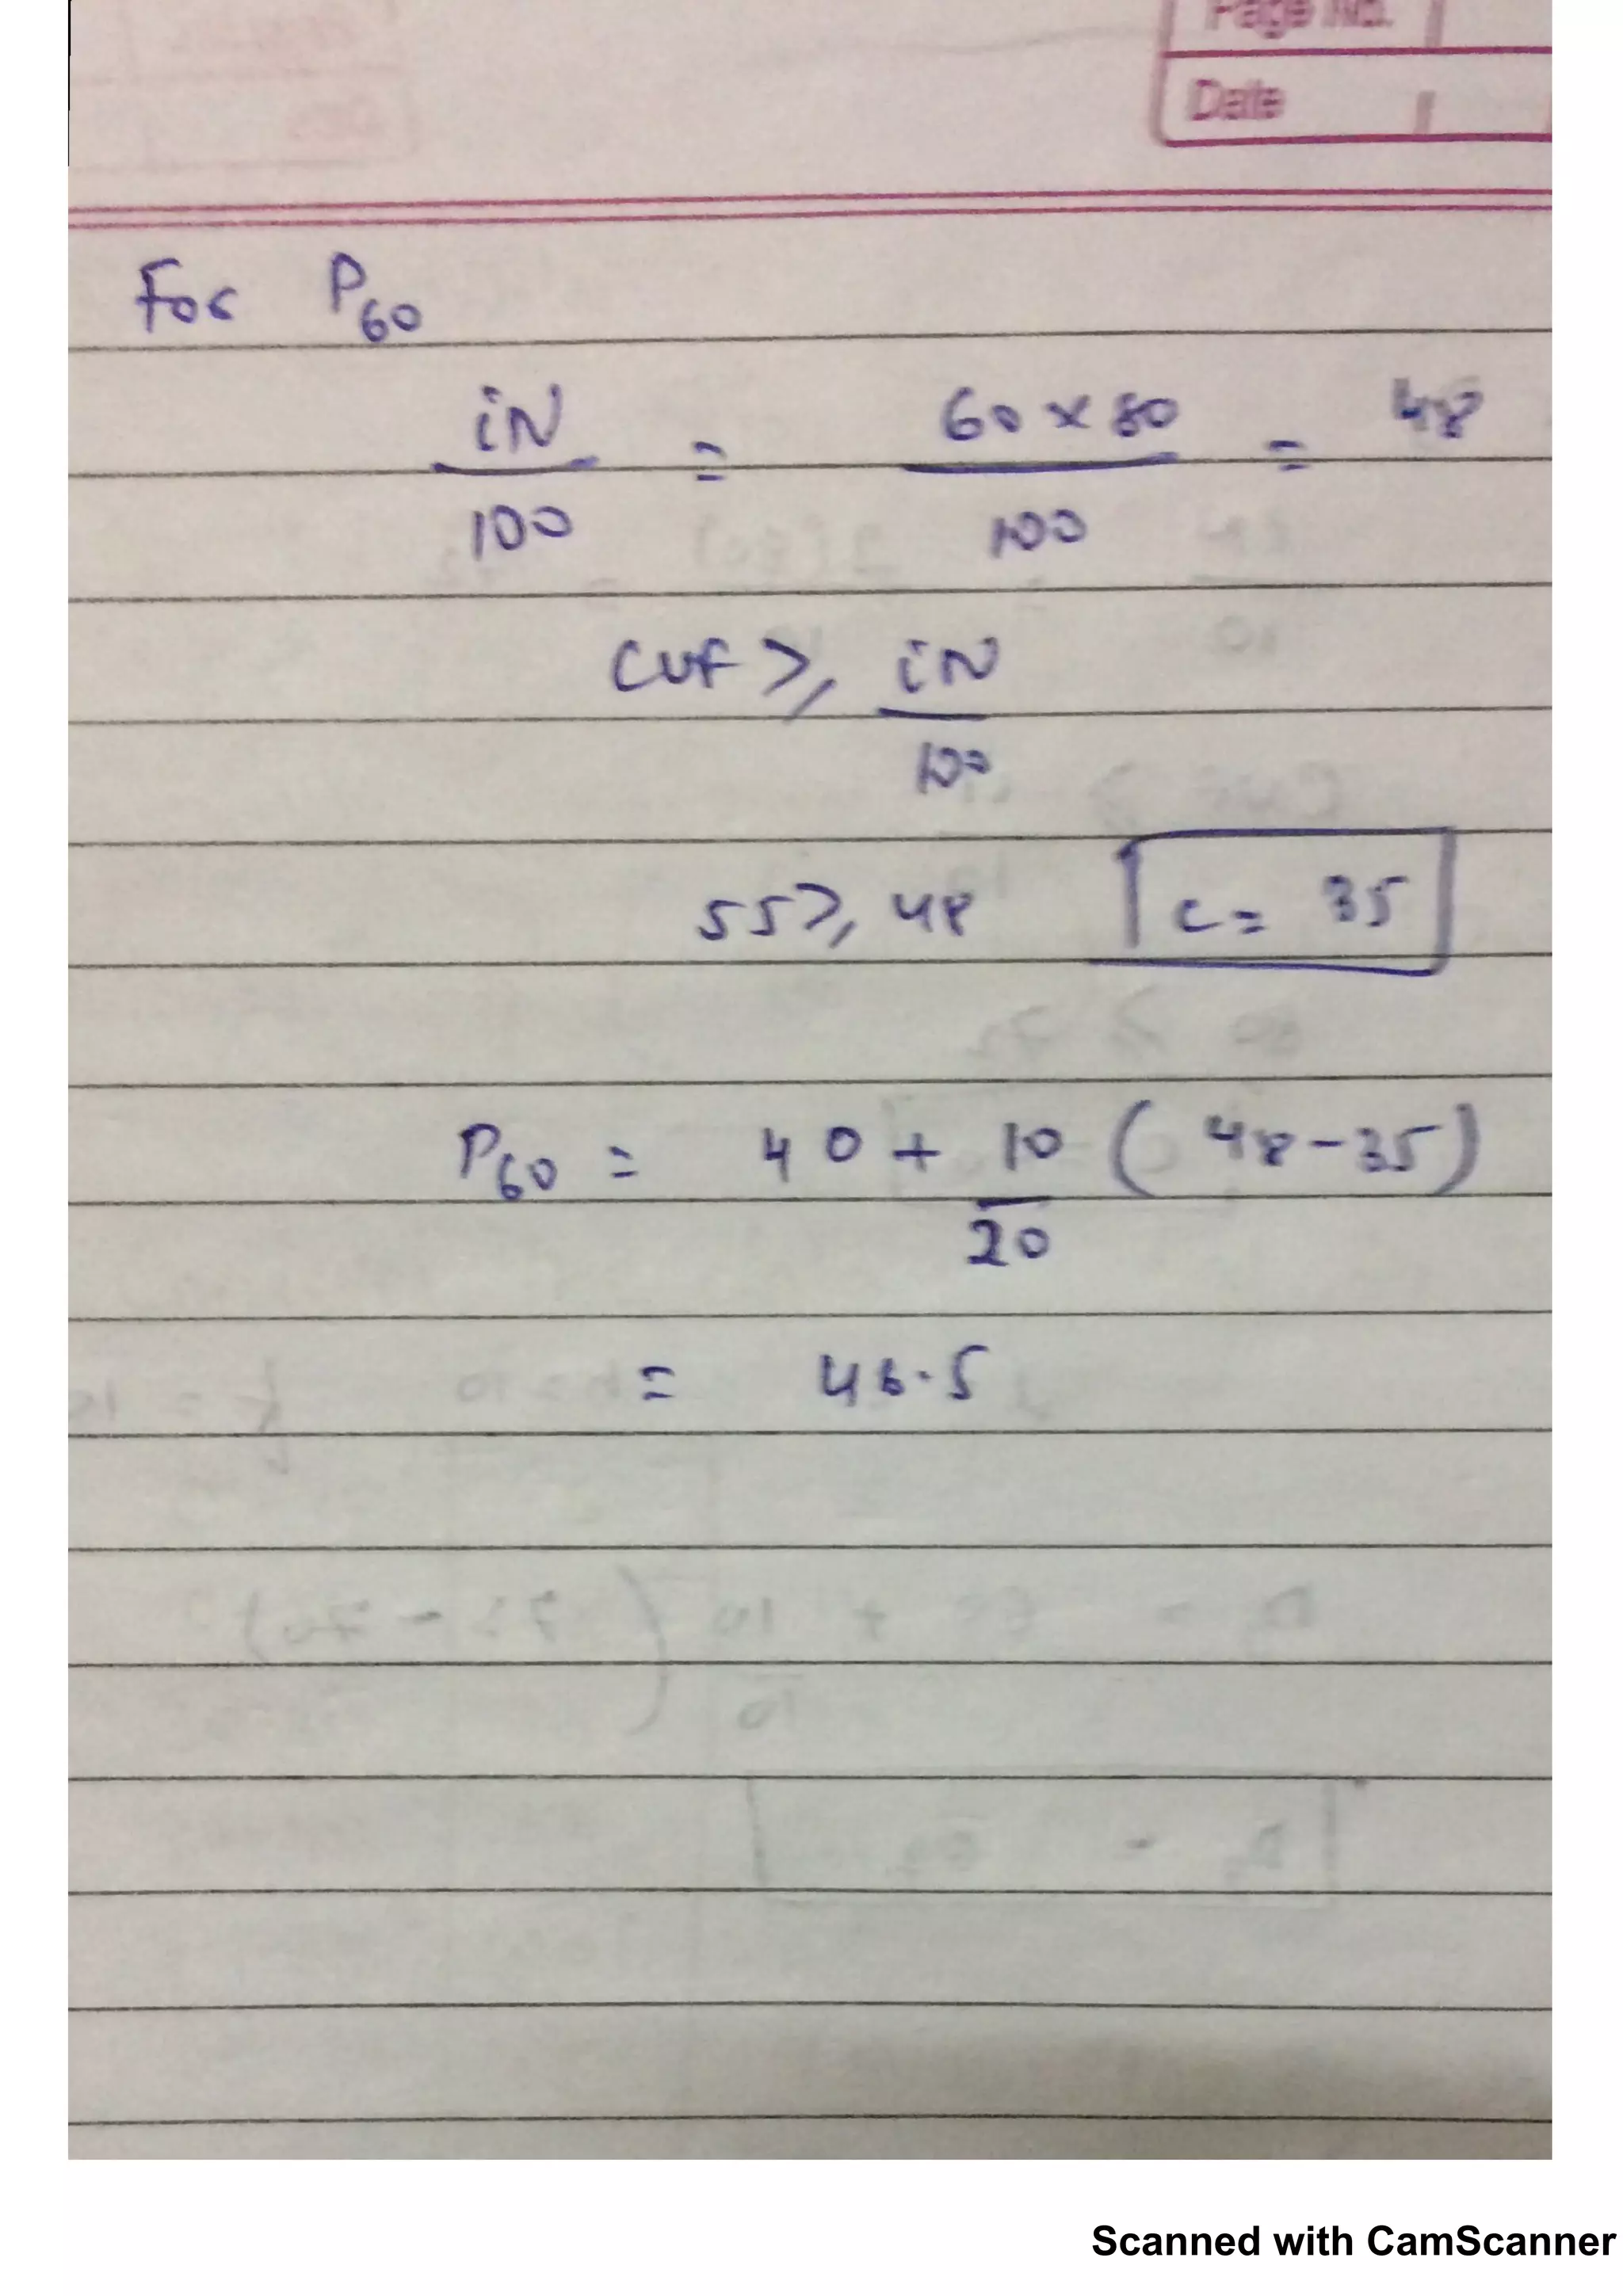 Page No.
Date
For P60
iN/100 = 60 x 80/100 = 48
cuf ≥ iN/100
55 ≥ 48 c = 35
P60 = 40 + 10/20 ( 48 - 35 )
= 46.5
Scanned with CamScanner